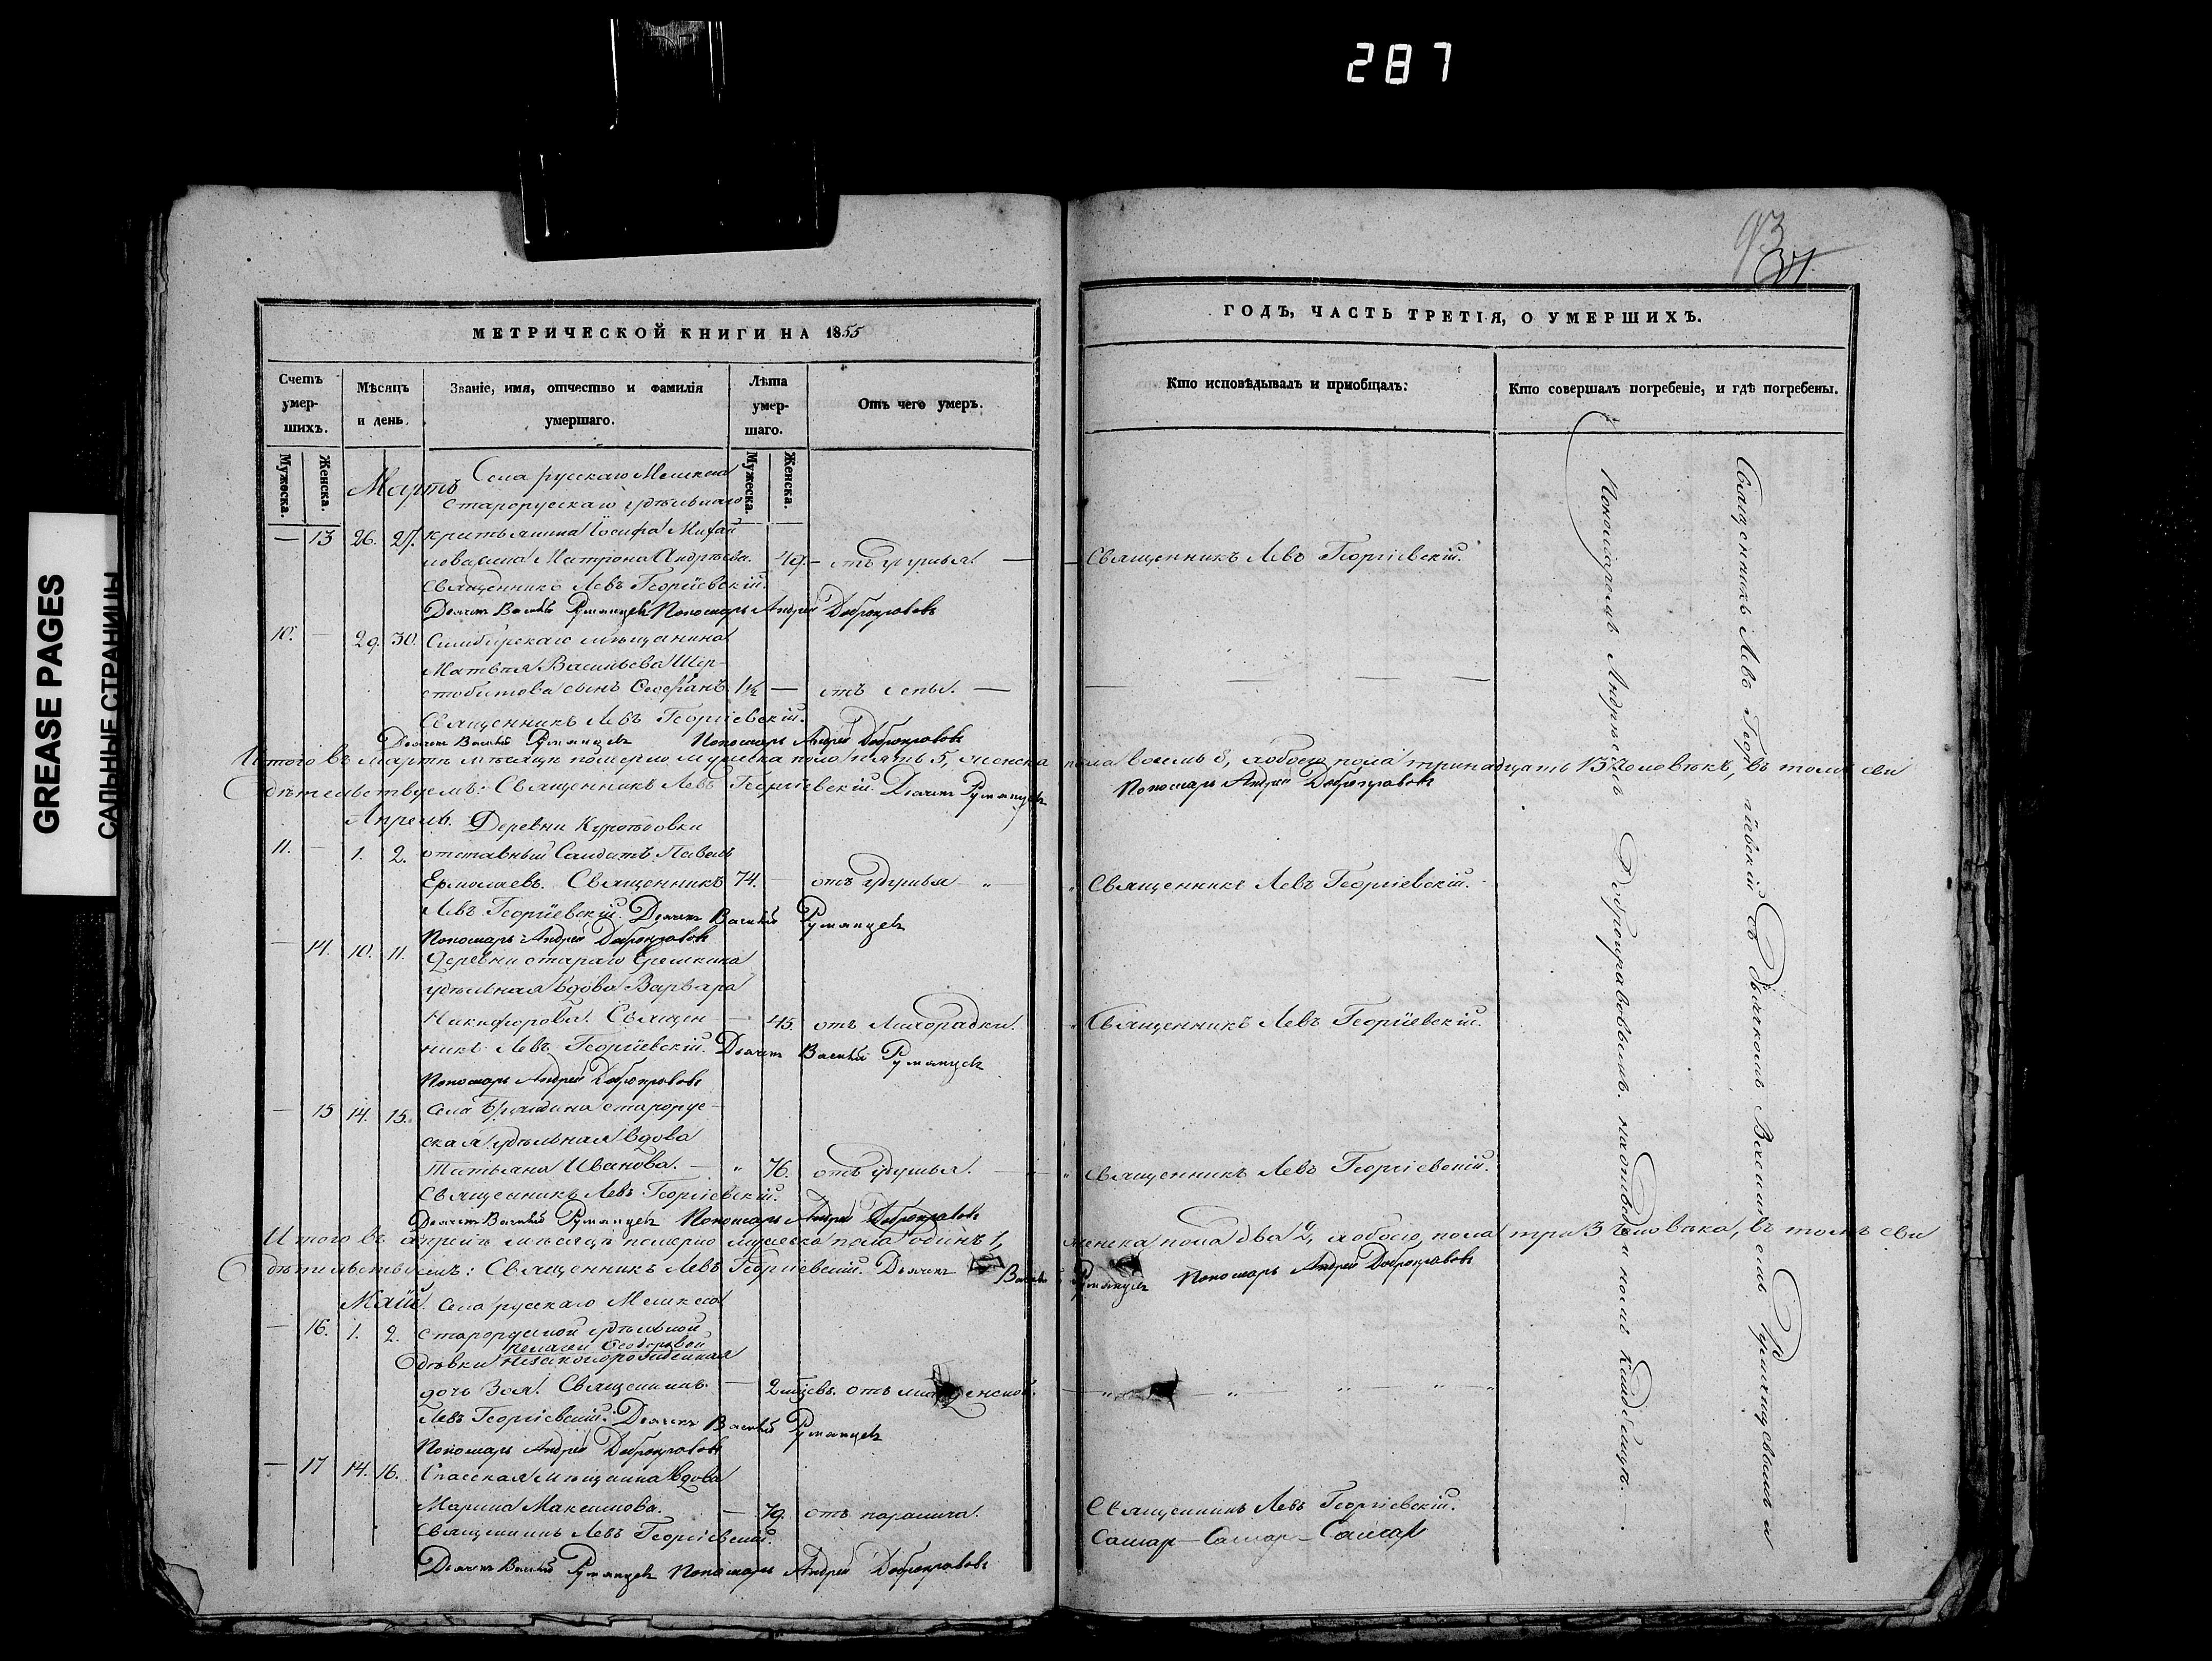 287
GREASE PAGES
САЛЬНЫЕ СТРАНИЦЫ
93
МЕТРИЧЕСКОЙ КНИГИ НА 1855
Счетъ умершихъ.
Мѣсяцъ и день.
Званіе, имя, отчество и фамилія умершаго.
Лѣта умершаго.
Отъ чего умеръ.
Мужеска.
Женска.
Мужеска.
Женска.
Мартъ Села русскаго Мелекеса
старорускаго удѣльнаго
— 13 26. 27. крестьянина Іосифа Михай
лова жена Матрона Андрѣева. 49. — отъ удушья. —
Священникъ Левъ Георгіевскій.
Дьячекъ Василій Румянцевъ Пономарь Андрей Доброправовъ
10. — 29. 30. Симбирскаго мѣщанина
Матвѣя Васильева Шер-
стобитова сынъ Стефанъ 1½ — отъ оспы. —
Священникъ Левъ Георгіевскій.
Дьячекъ Василій Румянцевъ Пономарь Андрей Доброправовъ
Итого въ Мартѣ мѣсяцѣ померло мужеска пола пять 5, женска
дѣтельствуемъ: Священникъ Левъ Георгіевскій. Дьячекъ Румянцевъ
Апрель. Деревни
11. — 1. 2. отставный Солдатъ Павелъ
Ермолаевъ. Священникъ 74. — отъ удушья
Левъ Георгіевскій. Дьячекъ Василій Румянцевъ
Пономарь Андрей Доброправовъ
— 14. 10. 11. Деревни стараго Еремкина
удѣльная вдова Варвара
Никифорова. Священ — 45. отъ Лихорадки.
никъ Левъ Георгіевскій. Дьячекъ Василій Румянцевъ
Пономарь Андрей Доброправовъ
— 15 14. 15. Села Бряндина старорус-
ская удѣльная вдова
Татьяна Иванова. — „ 76. отъ удушья. —
Священникъ Левъ Георгіевскій.
Дьячекъ Василій Румянцевъ Пономарь Андрей Доброправовъ
Итого въ апрелѣ мѣсяцѣ померло мужеска пола одинъ 1,
дѣтельствуемъ: Священникъ Левъ Георгіевскій. Дьячекъ Василій
Май. Села русскаго Мелекеса
— 16. 1. 2. старорусской удѣльной
Пелагеи Ѳеодоровой
дѣвки незаконорожденная
дочь Зоя. Священникъ — 2 мѣсцевъ. отъ младенской.
Левъ Георгіевскій. Дьячекъ Василій Румянцевъ
Пономарь Андрей Доброправовъ
— 17 14. 16. Спасская мѣщанка вдова
Марина Максимова. — 79. отъ паралича.
Священникъ Левъ Георгіевскій.
Дьячекъ Василій Румянцевъ Пономарь Андрей Доброправовъ
ГОДЪ, ЧАСТЬ ТРЕТІЯ, О УМЕРШИХЪ.
Кто исповѣдывалъ и приобщалъ:
Кто совершалъ погребеніе, и гдѣ погребены.
Священникъ Левъ Георгіевскій.
пола восемь 8, а обоего пола тринадцать 13 человѣкъ, въ томъ сви
Пономарь Андрей Доброправовъ
Священникъ Левъ Георгіевскій.
Священникъ Левъ Георгіевскій.
Священникъ Левъ Георгіевскій.
женска пола два 2, а обоего пола три 3 человѣка, въ томъ сви
Румянцевъ Пономарь Андрей Доброправовъ
Священникъ Левъ Георгіевскій.
Священникъ Левъ Георгіевскій съ Дьячкомъ Васильемъ Румянцевымъ и
Пономаремъ Андреемъ Доброправовымъ. на отведенномъ кладбищѣ.